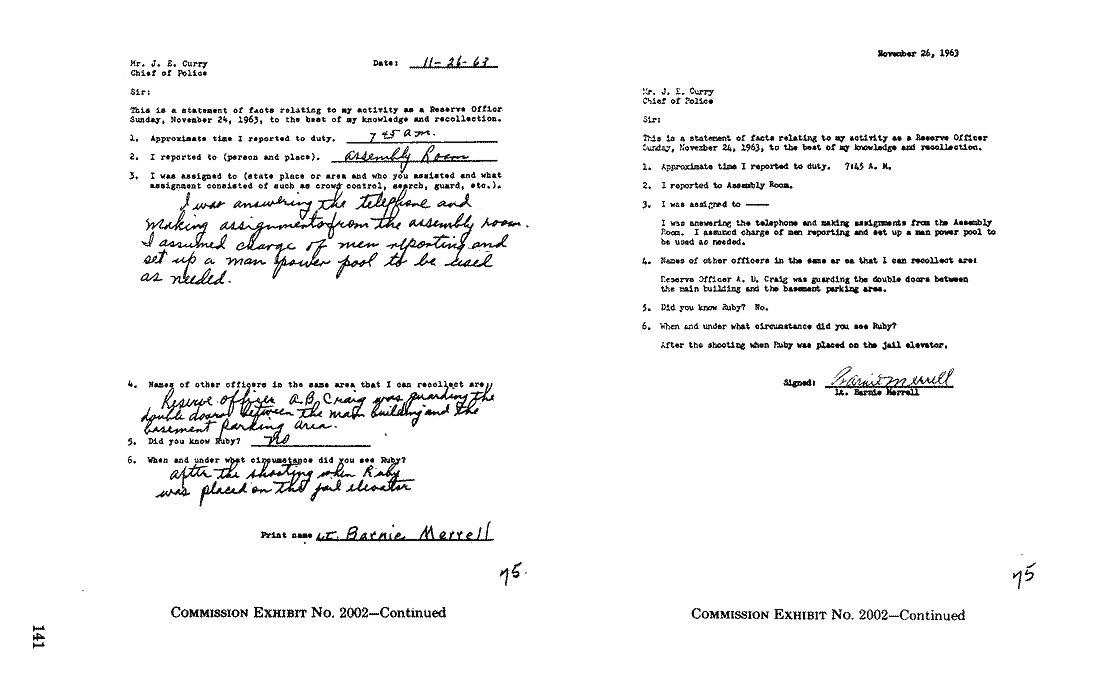 Mr. J. E. Curry
Chief of Police
Date: 11-26-63
Sir:
This is a statement of facts relating to my activity as a Reserve Officer
Sunday, November 24, 1963, to the best of my knowledge and recollection.
1. Approximate time I reported to duty. 7 45 a.m.
2. I reported to (person and place). Assembly Room
3. I was assigned to (state place or area and who you assisted and what
assignment consisted of such as crowd control, search, guard, etc.).
I was answering the telephone and
making assignments from the assembly room.
I assumed charge of men reporting and
set up a man power pool to be used
as needed.
4. Names of other officers in the same area that I can recollect are:
Reserve officer A.B. Craig was guarding the
double doors between the main building and the
basement parking area.
5. Did you know Ruby? No
6. When and under what circumstance did you see Ruby?
after the shooting when Ruby
was placed on the jail elevator
Print name Lt. Barnie Merrell
75.
COMMISSION EXHIBIT No. 2002—Continued
141
November 26, 1963
Mr. J. E. Curry
Chief of Police
Sir:
This is a statement of facts relating to my activity as a Reserve Officer
Sunday, November 24, 1963, to the best of my knowledge and recollection.
1. Approximate time I reported to duty. 7:45 A. M.
2. I reported to Assembly Room.
3. I was assigned to ——
I was answering the telephone and making assignments from the Assembly
Room. I assumed charge of men reporting and set up a man power pool to
be used as needed.
4. Names of other officers in the same ar ea that I can recollect are:
Reserve Officer A. B. Craig was guarding the double doors between
the main building and the basement parking area.
5. Did you know Ruby? No.
6. When and under what circumstance did you see Ruby?
After the shooting when Ruby was placed on the jail elevator.
Signed: Barnie Merrell
Lt. Barnie Merrell
75
COMMISSION EXHIBIT No. 2002—Continued